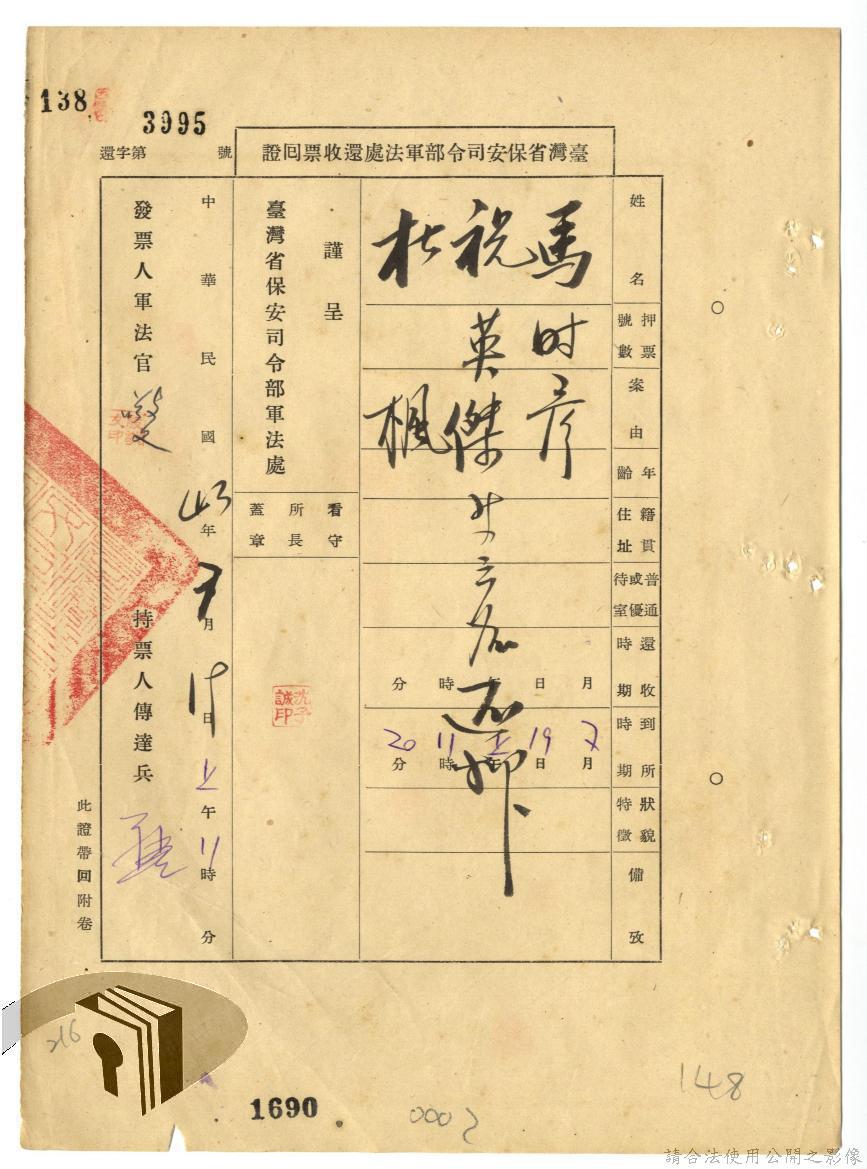 138
3995
還字第 號
臺灣省保安司令部軍法處還收票回證
姓名
押票號數
案由
年齡
籍貫住址
普通或優待室
還收時期
到所時期
狀貌特徵
備攷
馬時彥
祝英傑等三名還押
杜楓
月 日 午 時 分
7月19日上午11時20分
謹呈
臺灣省保安司令部軍法處
看守所長蓋章
沈子誠印
中華民國43年7月 日上午11時 分
發票人軍法官
持票人傳達兵
此證帶回附卷
216
1690
0002
148
請合法使用公開之影像